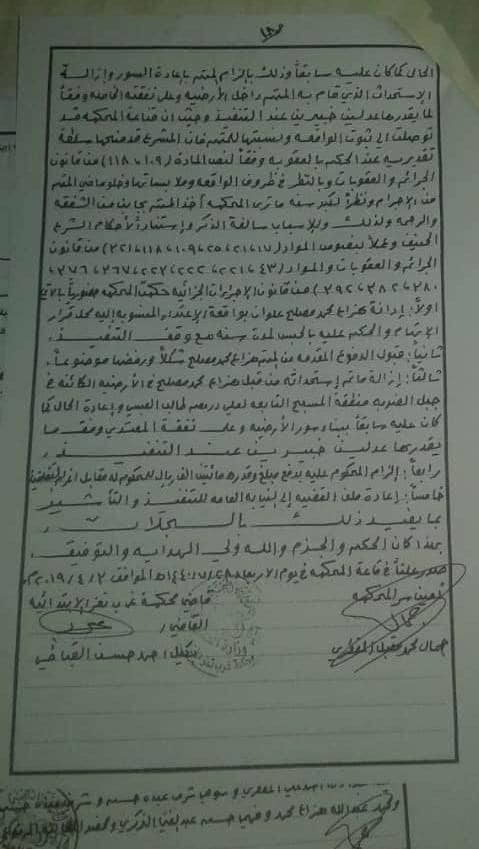 الحال كما كان عليه سابقاً وذلك بإلزام المتهم بإعادة السور وإزالة
الاستحداث الذي قام به المتهم داخل الأرضية وعلى نفقته الخاصة وفقاً
لما يقدرها عدلين خبيرين عند التنفيذ وحيث أن قناعة المحكمة قد
توصلت إلى ثبوت الواقعة ونسبتها للمتهم فإن المشرع قد منحها سلطة
تقديريه عند الحكم بالعقوبه وفقاً لنص المادة (١٠٩، ١١٨) من قانون
الجرائم والعقوبات وبالنظر في ظروف الواقعة وملابساتها وخلو ماضي المتهم
من الإجرام ونظراً لكبر سنه ما ترى المحكمة أخذ المتهم بجانب من الشفقه
والرحمه ولذلك وللأسباب سالفة الذكر وإستناداً لأحكام الشرع
الحنيف وعملاً بنصوص المواد
الجرائم والعقوبات والمواد
من قانون الإجراءات الجزائية حكمت المحكمة حضورياً بالآتي
أولاً: إدانة هزاع محمد مصلح علوان بواقعة الإعتداء المنسوبه إليه محل قرار
الإتهام والحكم عليه بالحبس لمدة سنه مع وقف التنفيذ.
ثانياً: قبول الدفوع المقدمه من المتهم هزاع محمد مصلح شكلاً ورفضها موضوعاً.
ثالثاً: إزالة ما تم إستحداثه من قبل هزاع محمد مصلح في الأرضيه الكائنه في
جبل منطقة المسبح التابعه لعلي طالب العبسي وإعادة الحال كما
كان عليه سابقاً ببناء سور الأرضيه وعلى نفقة المعتدي وفق ما
يقدرها عدلين خبيرين عند التنفيذ.
رابعاً: إلزام المحكوم عليه بدفع مبلغ وقدره مائتين الف ريال للمحكوم له مقابل أغرام التقاضي
خامساً: إعادة ملف القضيه إلى النيابه العامه للتنفيذ والتأشير
بما يفيد ذلك بالسجلات.
بهذا كان الحكم والجزم والله ولي الهدايه والتوفيق.
صدر علناً في قاعة المحكمه في يوم الأربعاء الموافق ٢٠١٩/٤/٢م
أمين سر المحكمه
قاضي محكمة غرب تعز الابتدائية
القاضي/
جمال محمد مقبل
حسن القباطي